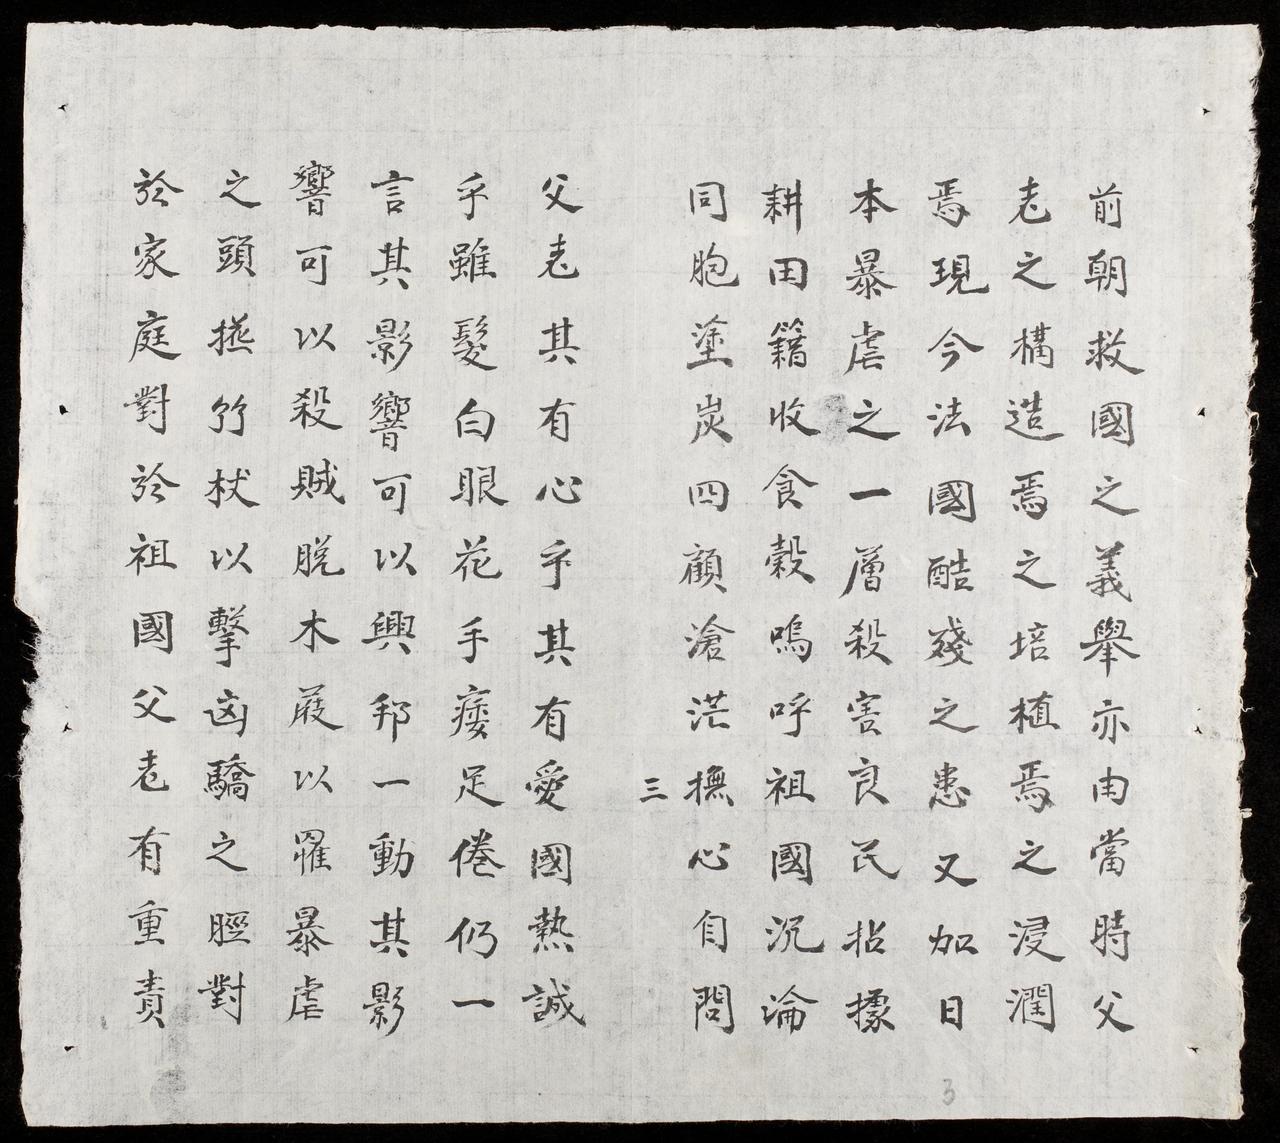 前朝救國之義舉亦由當時父
老之構造焉之培植焉之浸潤
焉現今法國酷殘之患又加日
本暴虐之一層殺害良民拈據
耕田籍收食穀嗚呼祖國沉淪
同胞塗炭四顧滄茫撫心自問
三
父老其有心乎其有愛國熱誠
乎雖髮白眼花手痿足倦仍一
言其影響可以興邦一動其影
響可以殺賊脫木屐以羅暴虐
之頭搖竹杖以擊凶驕之脛對
於家庭對於祖國父老有重責
3